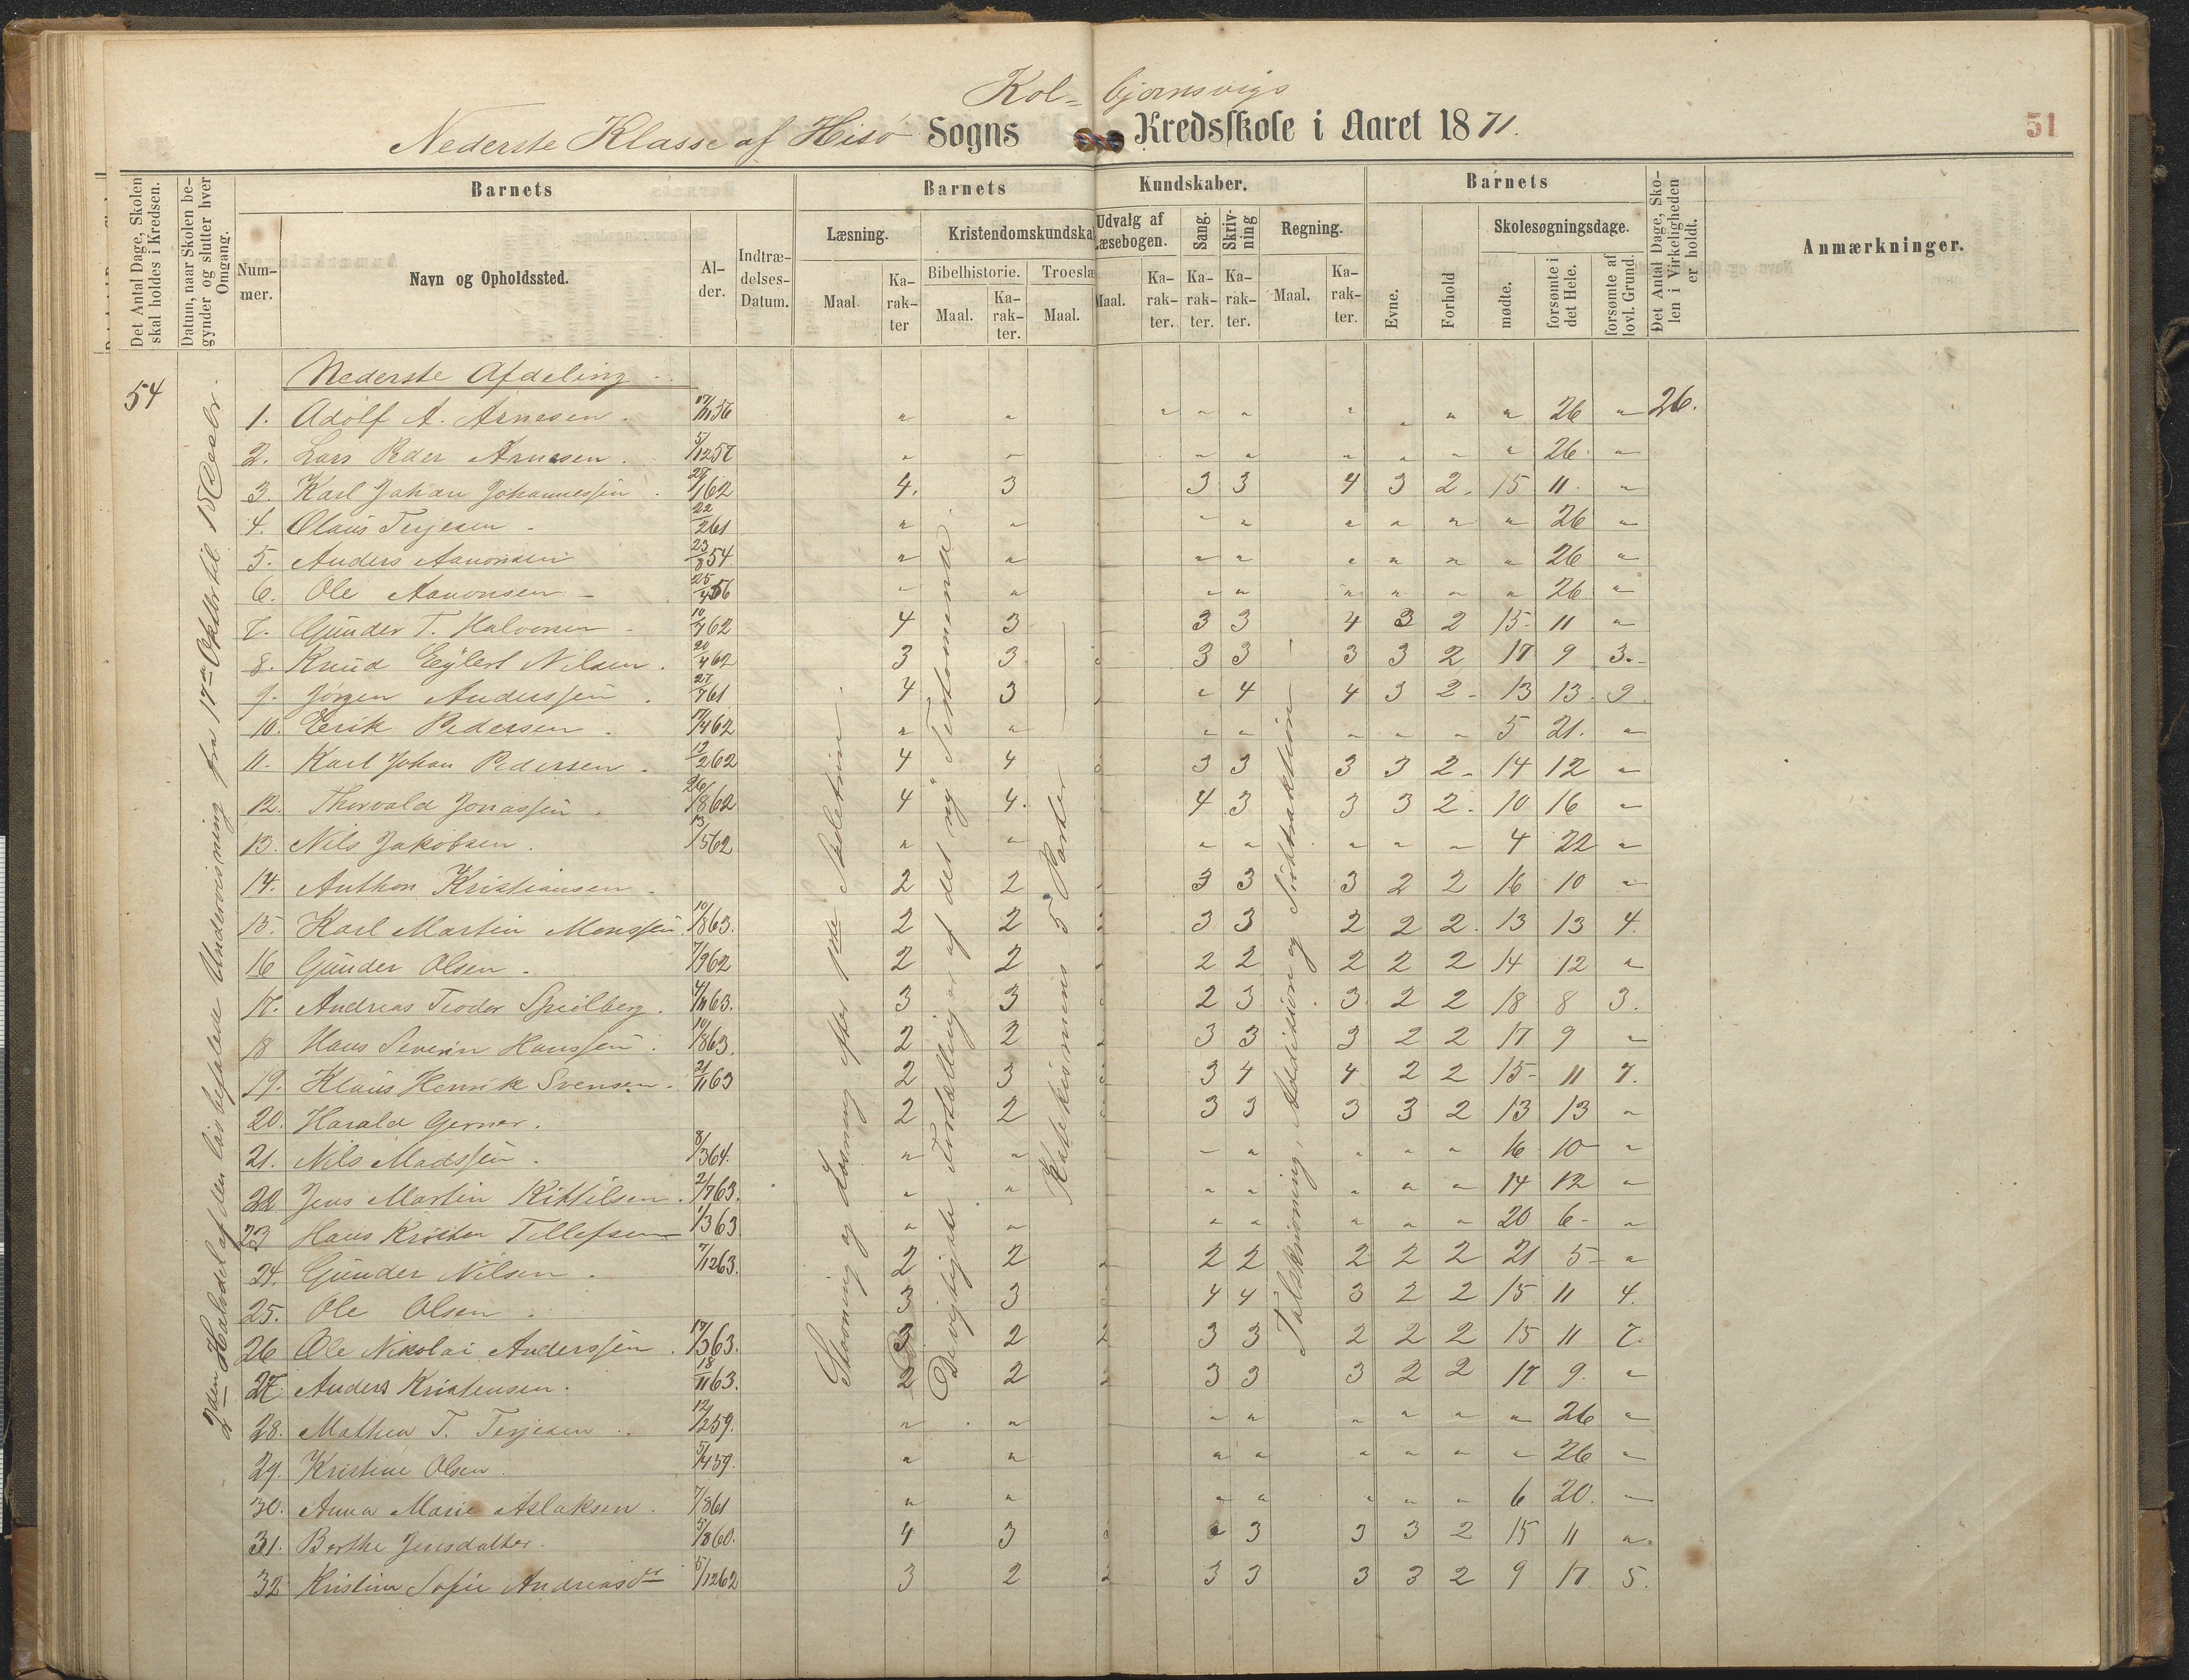 Kol- bjornsvigs
Nederste Klasse af Hisø Sogns Kredsskole i Aaret 1871.
51
Det Antal Dage, Skolen skal holdes i Kredsen.
Datum, naar Skolen begynder og slutter hver Omgang.
Barnets
Barnets Kundskaber.
Barnets
Det Antal Dage, Skolen i Virkeligheden er holdt.
Anmærkninger.
Nummer.
Navn og Opholdssted.
Alder.
Indtrædelses-Datum.
Læsning.
Kristendomskundska
Udvalg af Læsebogen.
Sang.
Skrivning
Regning.
Evne.
Forhold
Skolesøgningsdage.
Maal.
Karakter
Bibelhistorie.
Troeslæ
Maal.
Karakter.
Maal.
Maal.
Karakter.
Karakter.
Karakter.
Maal.
Karakter.
mødte.
forsømte i det Hele.
forsømte af lovl. Grund.
54
2den Halvdel af den lovbefalede Undervisning fra 17de Oktbr til 15 Decbr.
Stavning og Læsning efter
af det ny Testamente.
Katekismens 5 Parter
Talskrivning, Addition og Subtraktion
Nederste Afdeling.
1. Adolf A. Arnesen. 17/11 56 " " " " " " " " " 26 " 26.
2. Lars Peder Arnesen. 5/12 57 " " " " " " " " 26. "
3. Karl Johan Johannessen. 28/1 62 4. 3 3 3 4 3 2. 15 11. "
4. Olaus Terjesen. 22/2 61 " " " " " " " " 26 "
5. Anders Aanonsen 23/8 54 " " " " " " " " 26 "
6. Ole Aanonsen 25/4 56 " " " " " " " " 26 "
7. Gunder T. Halvorsen 10/7 62 4 3 3 3 4 3 2 15 11 "
8. Knud Eylert Nilsen. 20/4 62 3 3 3 3 3 3 2 17 9 3.
9. Jørgen Anderssen. 27/7 61 4 3 " 4 4 3 2 13 13. 9.
10. Erik Pedersen. 17/4 62 " " " " " " " 5 21. "
11. Karl Johan Pedersen. 12/2 62 4 4 3 3 3 3 2 14 12 "
12. Thorvald Jonassen. 26/8 62 4 4. 4 3 3 3 2 10 16 "
13. Nils Jakobsen. 13/5 62 " " " " " " " 4 22 "
14. Anthon Kristiansen. 2 2 3 3 3 2 2 16 10 "
15. Karl Martin Monssen. 10/8 63. 2 2 2 3 3 2 2 2. 13 13 4.
16 Gunder Olsen. 7/9 62 2 2 2 2 2 2 2 14 12 "
17. Andreas Teodor Spilberg. 4/11 63. 3 3 2 3 3 2 2 18 8 3.
18 Hans Severin Hanssen. 10/8 63. 2 2 3 3 3 2 2 17 9 "
19. Klaus Henrik Svensen. 21/11 63 2 3 3 4 4 2 2 15 11 7.
20. Harald Gerner. 2 2 3 3 3 3 2 13 13 "
21. Nils Madssen. 8/3 64. " " " " " " " 16 10 "
22 Jens Martin Kittilsen. 2/7 63. " " " " " " " 14 12 "
23 Hans Kristen Tellefsen 1/3 63 " " " " " " " 20 6 "
24. Gunder Nilsen. 7/12 63. 2 2 2 2 2 2 2 21 5 "
25. Ole Olsen. 3 3 4 4 3 2 2 15 11 4.
26 Ole Nikolai Anderssen. 17/3 63. 2 2 3 3 2 2 2 15 11 7.
27. Anders Kristensen. 18/11 63. 2 2 2 3 3 3 2 2 17 9. "
28. Mathea T. Terjesen. 12/2 59. " " " " " " " " 26 "
29. Kristine Olsen. 5/4 59. " " " " " " " " 26 "
30. Anna Marie Aslaksen. 7/8 61 " " " " " " " 6 20. "
31. Berthe Jensdatter. 5/8 60. 4 3 " 3 3 3 2 15 11 "
32 Kristine Sofie Andreasdtr 5/12 62 3 2 2 3 3 3 3 2 9 17. 5.